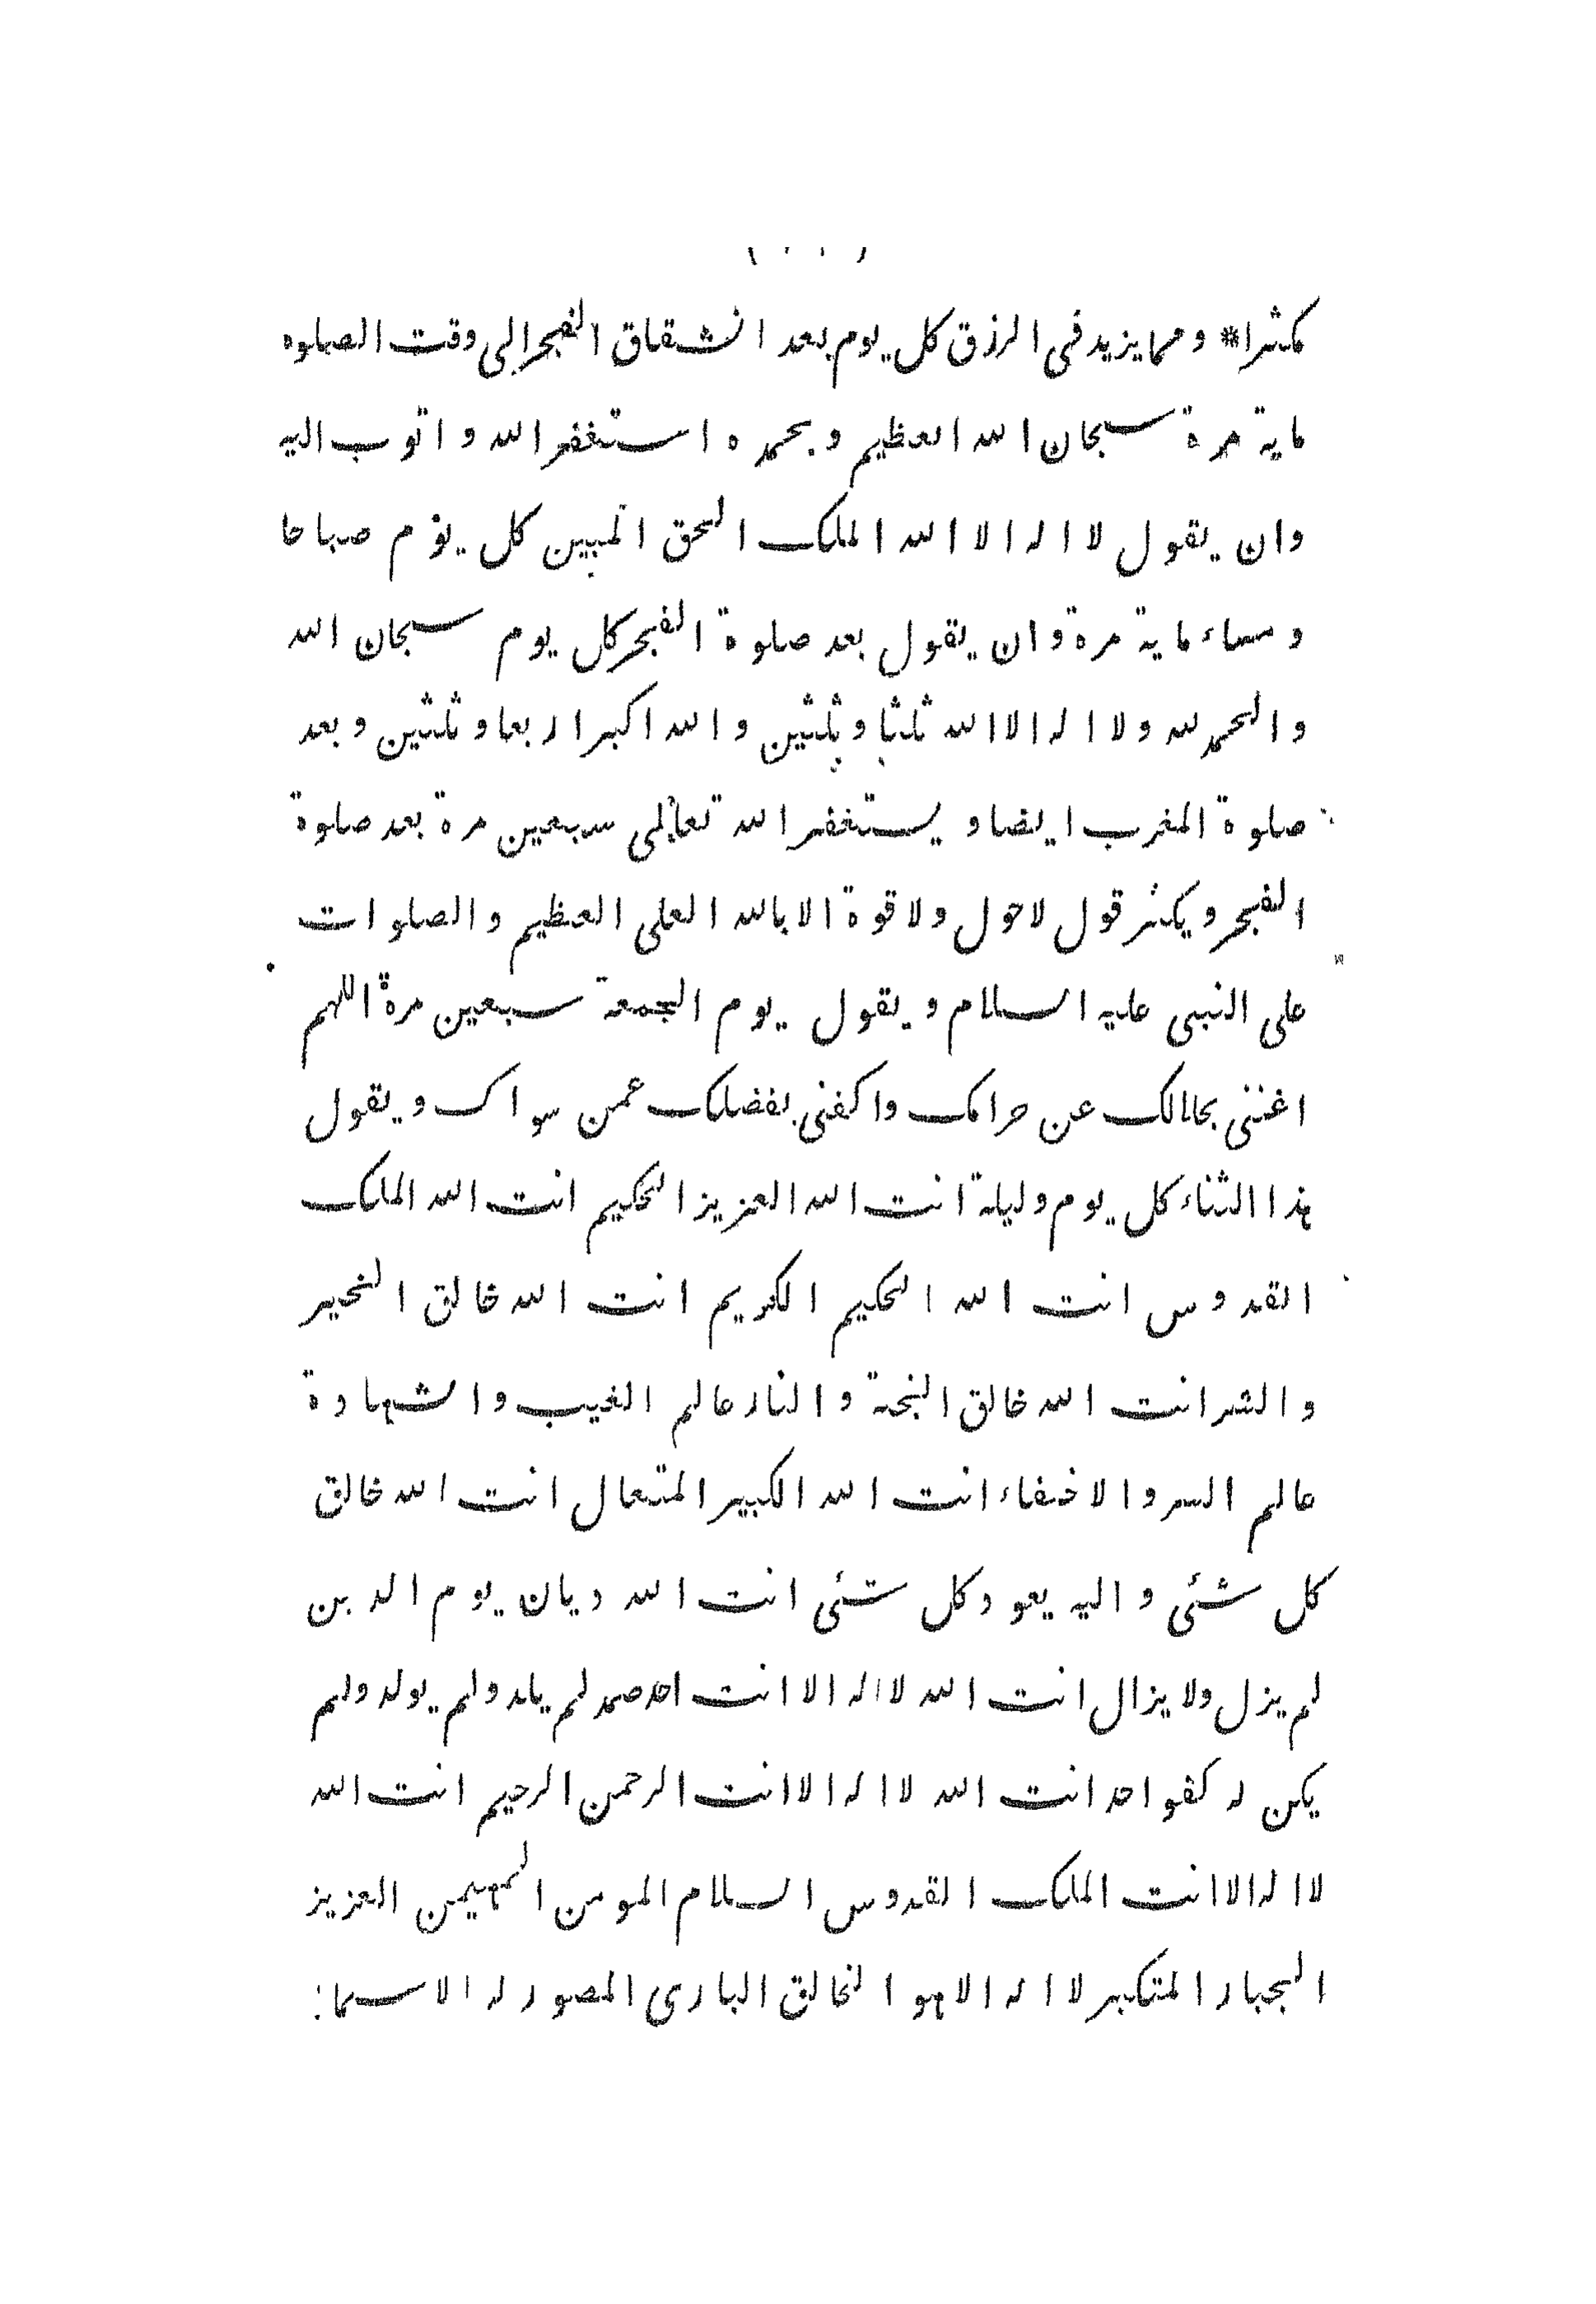 كثيرا * ومما يزيد فى الرزق كل يوم بعد انشقاق الفجر الى وقت الصلوه
ماية مرة سبحان الله العظيم وبحمده استغفر الله واتوب اليه
وان يقول لا اله الا الله الملك الحق المبين كل يوم صباحا
ومساء ماية مرة وان يقول بعد صلوة الفجر كل يوم سبحان الله
والحمد لله ولا اله الا الله ثلثا وثلثين والله اكبر اربعا وثلثين وبعد
صلوة المغرب ايضا ويستغفر الله تعالى سبعين مرة بعد صلوة
الفجر ويكثر قول لا حول ولا قوة الا بالله العلى العظيم والصلوات
على النبى عليه السلام ويقول يوم الجمعة سبعين مرة اللهم
اغننى بحلالك عن حرامك واكفنى بفضلك عمن سواك ويقول
هذا الثناء كل يوم وليلة انت الله العزيز الحكيم انت الله الملك
القدوس انت الله الحكيم الكريم انت الله خالق الخير
والشر انت الله خالق الجنة والنار عالم الغيب والشهادة
عالم السر والاخفاء انت الله الكبير المتعال انت الله خالق
كل شئى واليه يعود كل شئى انت الله ديان يوم الدين
لم يزل ولا يزال انت الله لا اله الا انت احد صمد لم يلد ولم يولد ولم
يكن له كفوا احد انت الله لا اله الا انت الرحمن الرحيم انت الله
لا اله الا انت الملك القدوس السلام المومن المهيمن العزيز
الجبار المتكبر لا اله الا هو الخالق البارى المصور له الاسما